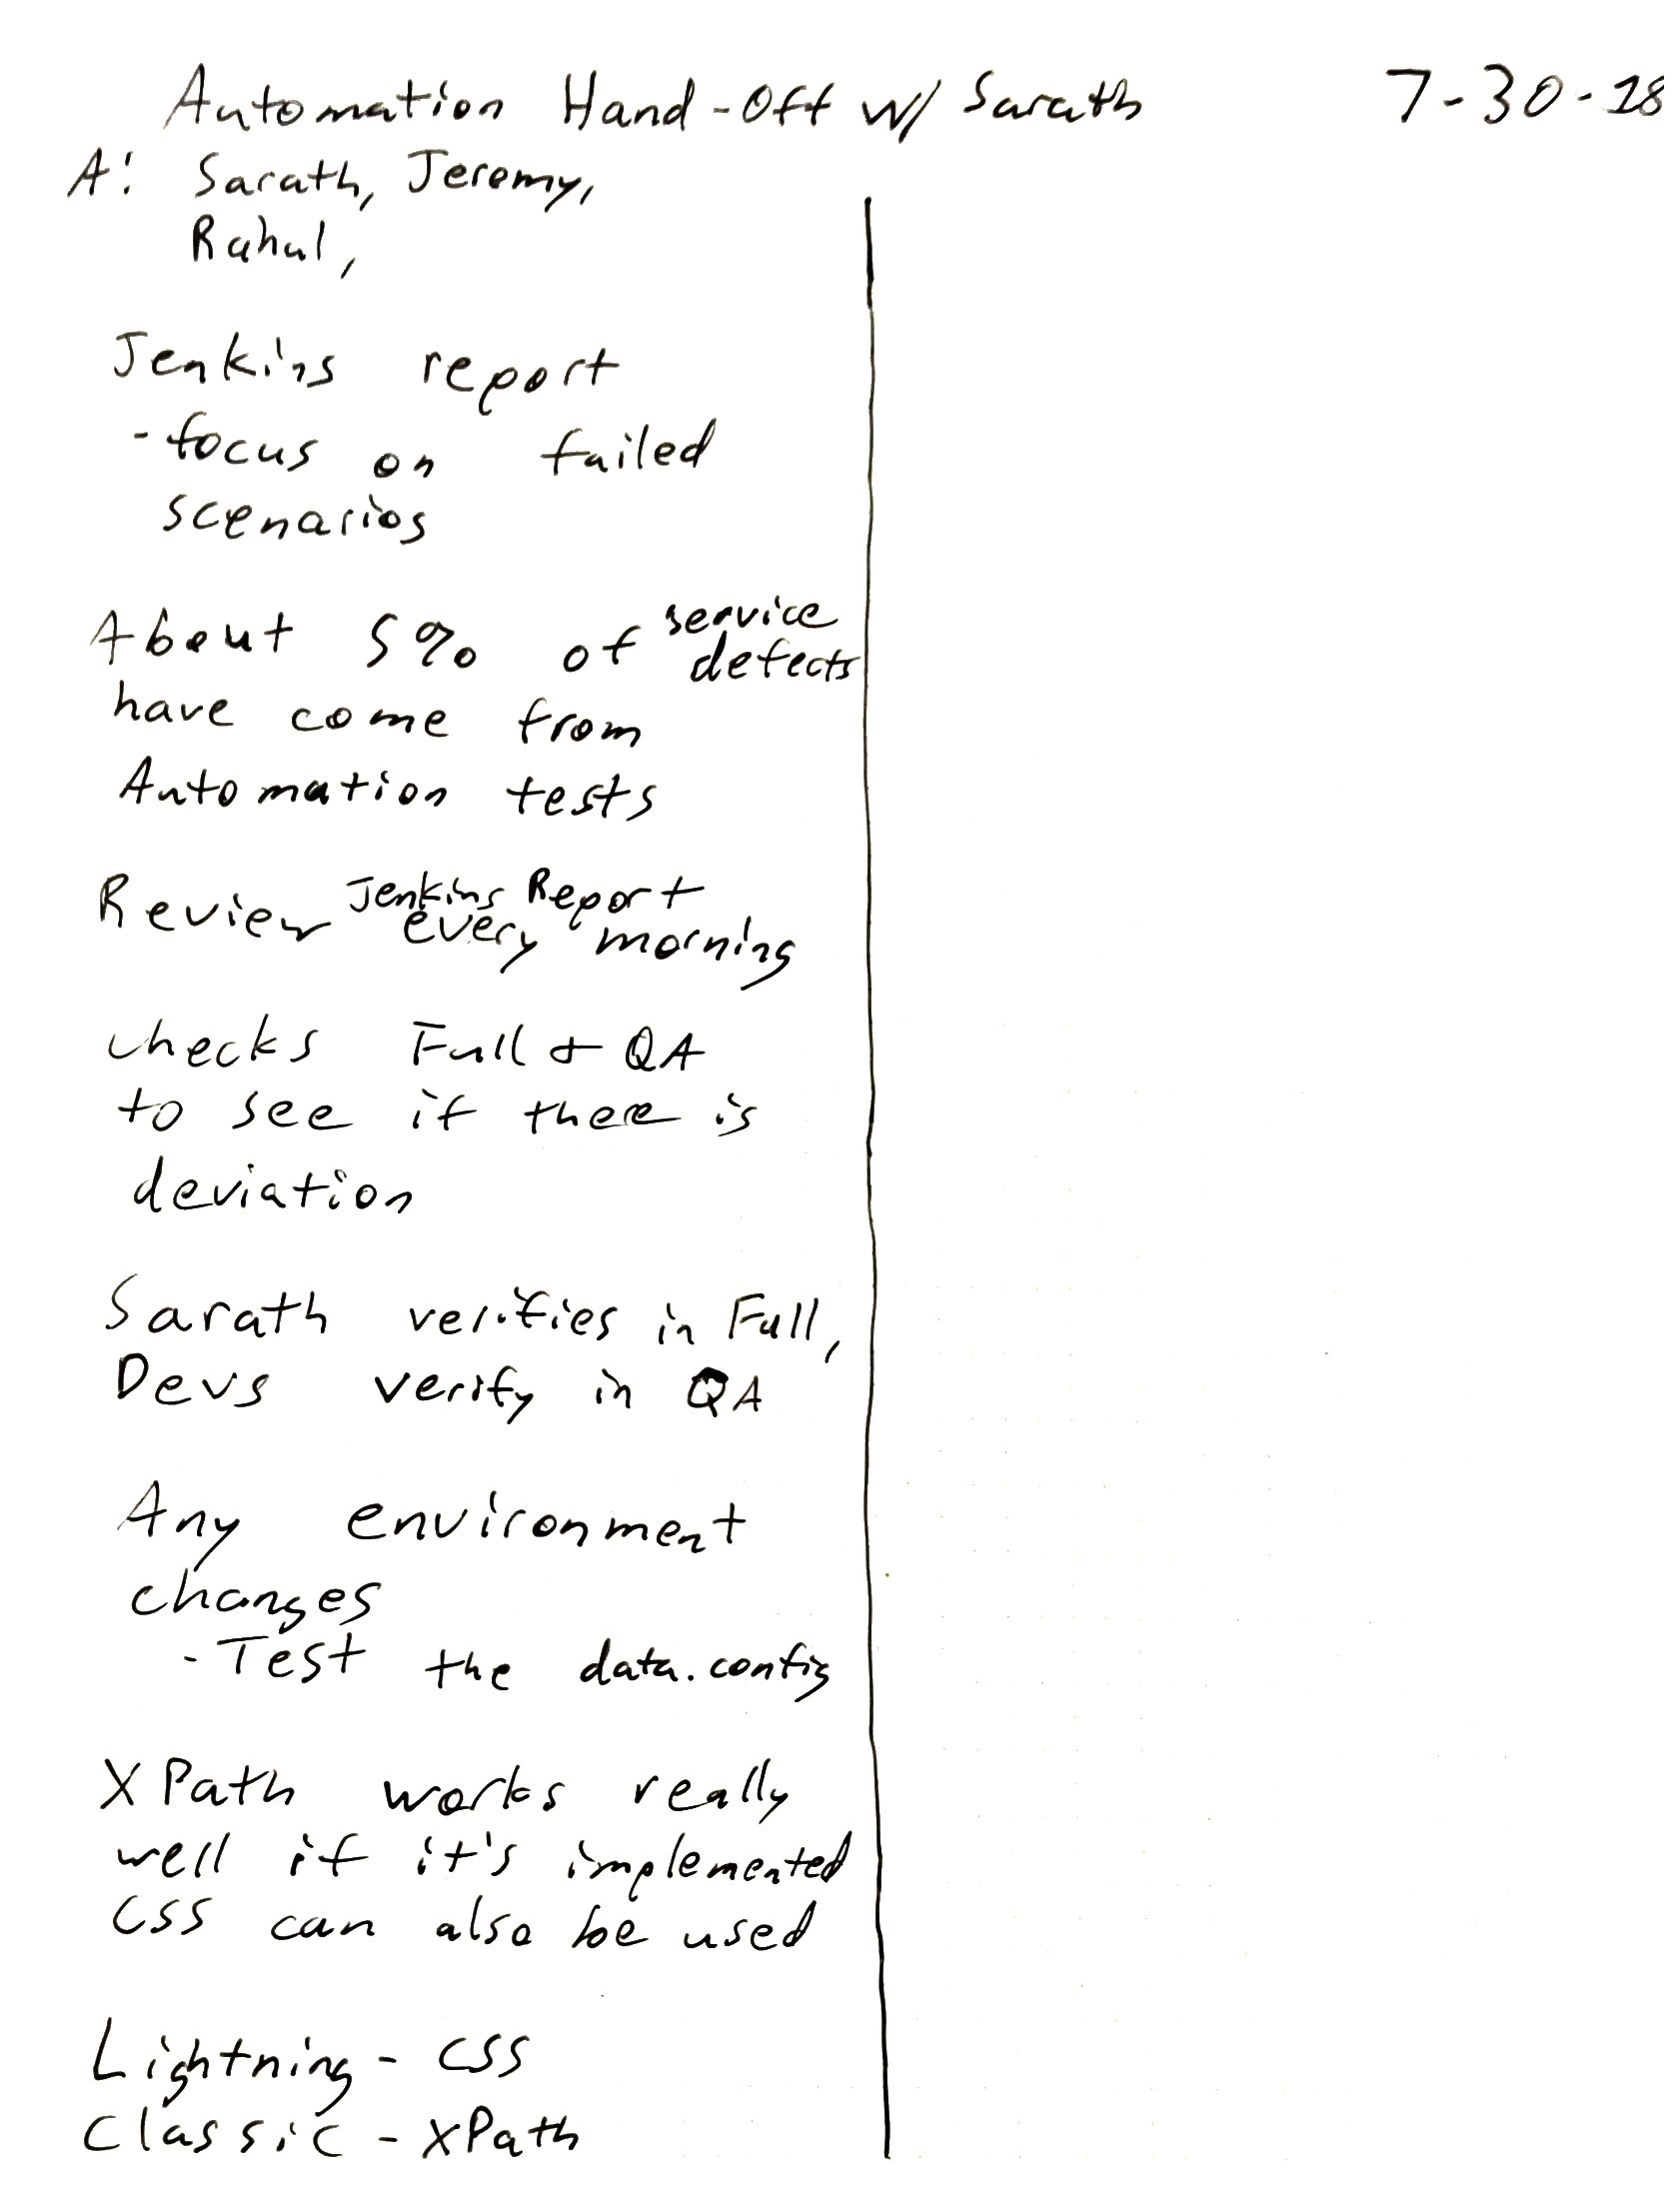 Automation Hand-Off w/ Sarath 7-30-18
A: Sarath, Jeremy,
Rahul,
Jenkins report
- focus on failed
scenarios
About 5% of service
defects
have come from
Automation tests
Review Jenkins Report
every morning
checks Full & QA
to see if there is
deviation
Sarath verifies in Full,
Devs verify in QA
Any environment
changes
- Test the data.config
XPath works really
well if it's implemented
CSS can also be used
Lightning - CSS
Classic - XPath